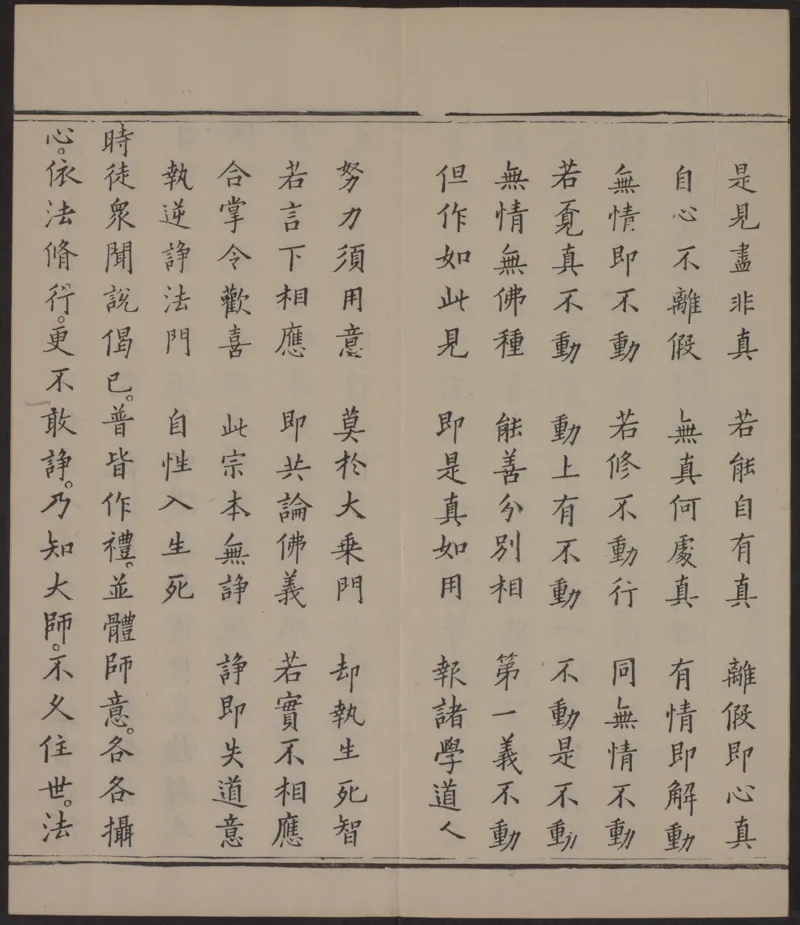 是見盡非真　若能自有真　離假即心真
自心不離假　無真何處真　有情即解動
無情即不動　若修不動行　同無情不動
若覔真不動　動上有不動　不動是不動
無情無佛種　能善分別相　第一義不動
但作如此見　即是真如用　報諸學道人
努力須用意　莫於大乘門　却執生死智
若言下相應　即共論佛義　若實不相應
合掌令歡喜　此宗本無諍　諍即失道意
執逆諍法門　自性入生死
時徒眾聞說偈已。普皆作禮。並體師意。各各攝
心。依法脩行。更不敢諍。乃知大師。不久住世。法